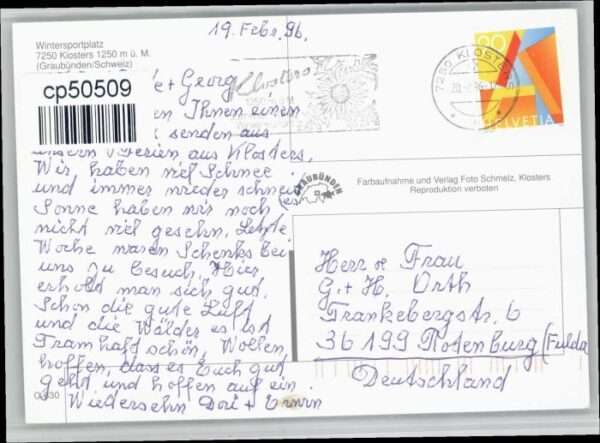 19. Febr. 96.
Wintersportplatz
7250 Klosters 1250 m ü. M.
(Graubünden/Schweiz)
cp50509
e + Georg
en Ihnen einen
senden aus
unsern Ferien aus Klosters.
Wir haben viel Schnee
und immer wieder schneit es
Sonne haben wir noch
nicht viel gesehn, Letzte
Woche waren Schenks bei
uns zu Besuch, Hier
erhold man sich gut.
Schon die gute Luft
und die Wälder es ist
Tramhaft schön, Wollen
hoffen, dass es Euch gut
geht und hoffen auf ein
Wiedersehn Dori + Erwin
00430
Klosters
7250 KLOSTERS
90
HELVETIA
GRAUBÜNDEN
Farbaufnahme und Verlag Foto Schmelz, Klosters
Reproduktion verboten
Herr & Frau
G. + H. Orth
Frankebergstr. 6
36 199 Rotenburg (Fulda
Deutschland